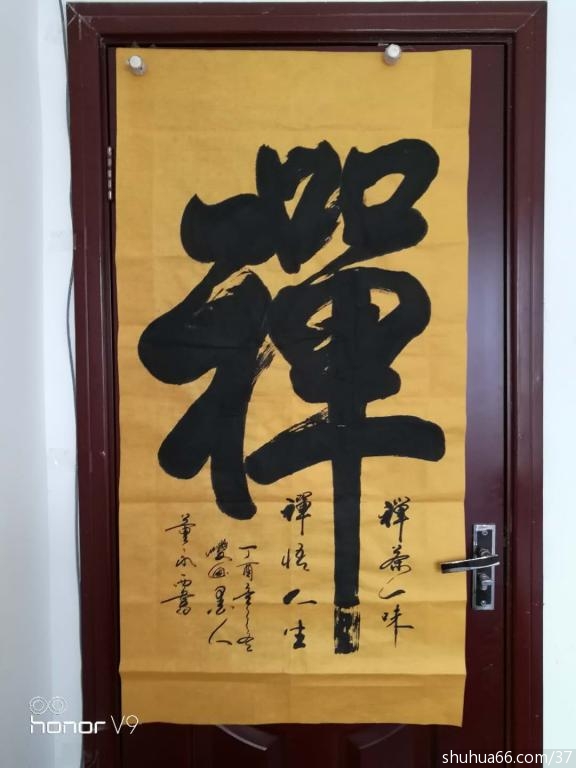 禪
禅茶一味
禪悟人生
丁酉
墨人
董永
honor V9
shuhua66.com/37